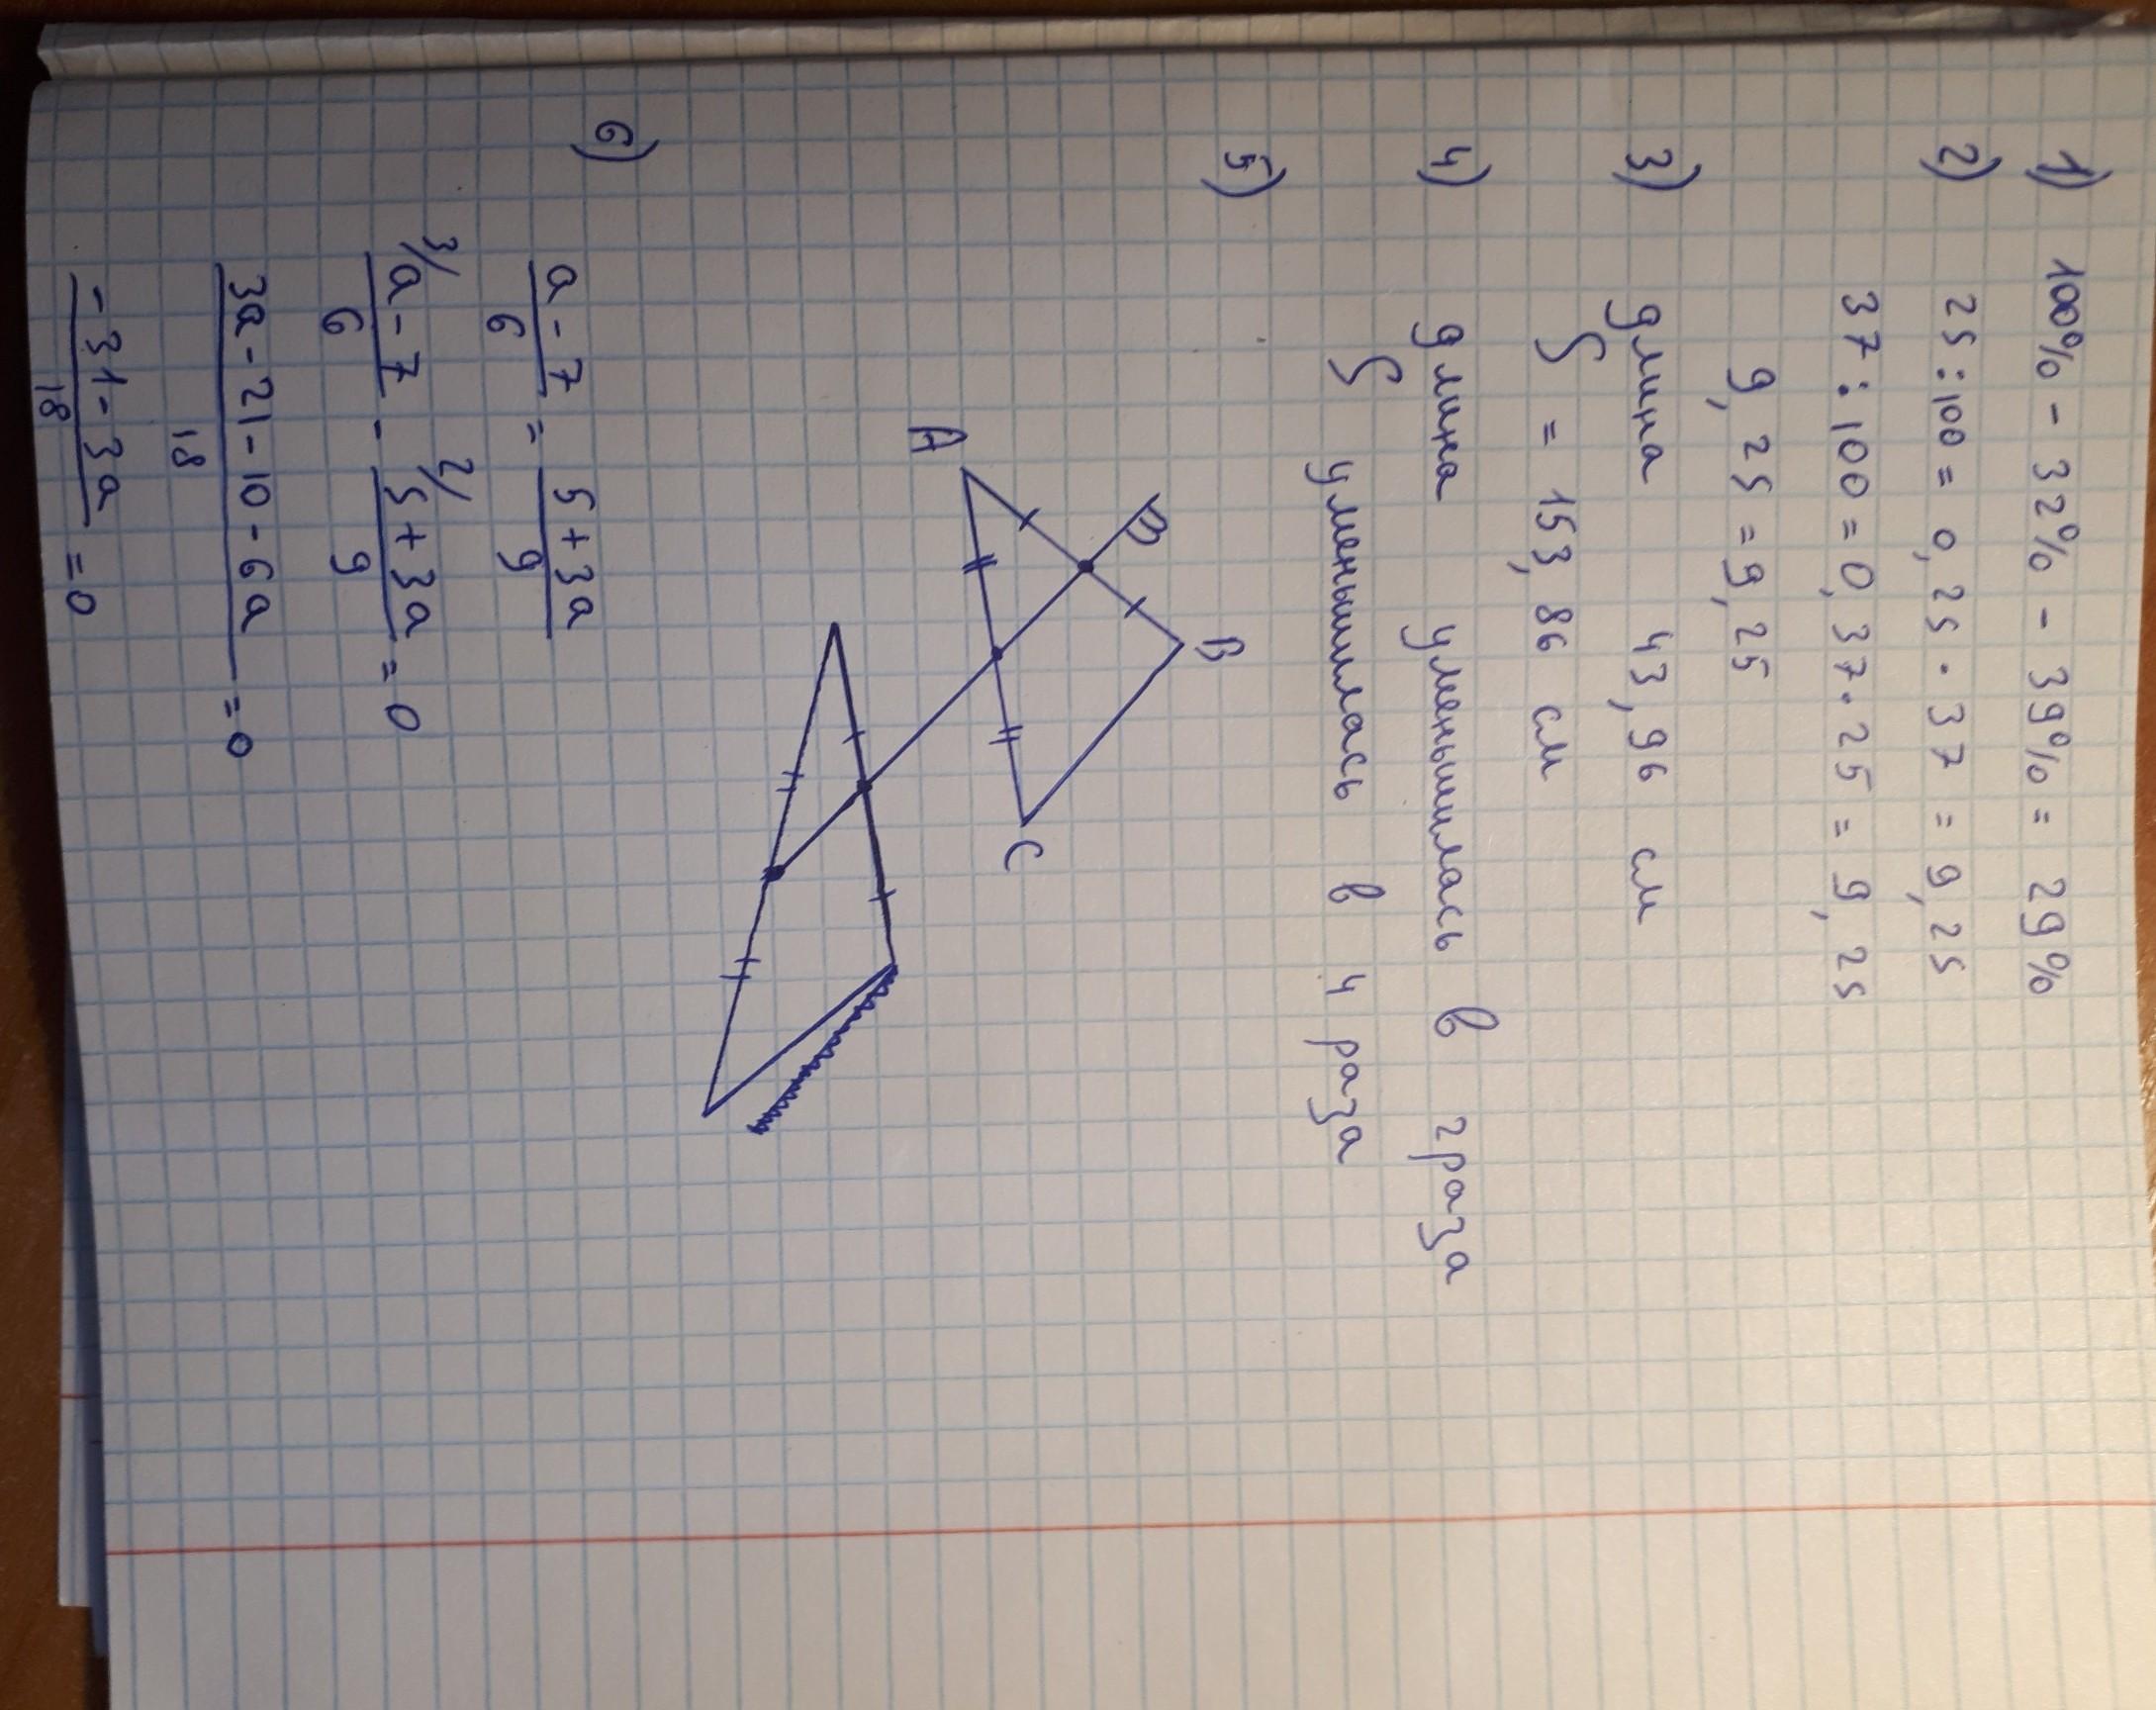 1) 100% - 32% - 39% = 29%
2) 25:100 = 0,25 · 37 = 9,25
37:100 = 0,37 · 25 = 9,25
9,25 = 9,25
3) длина 43,96 см
S = 153,86 см
4) длина уменьшилась в 2 раза
S уменьшилась в 4 раза
5)
B
A
C
6)
a - 7 / 6 = 5 + 3a / 9
3/ a - 7 / 6 - 2/ 5 + 3a / 9 = 0
3a - 21 - 10 - 6a / 18 = 0
- 31 - 3a / 18 = 0